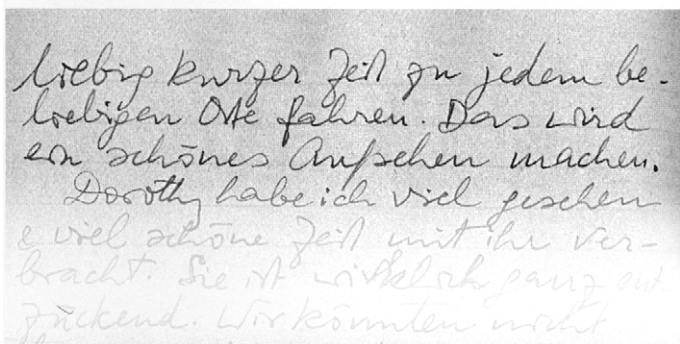 liebig kurzer Zeit zu jedem be-
liebigen Orte fahren. Das wird
ein schönes Aufsehen machen.
Dorothy habe ich viel gesehen
& viel schöne Zeit mit ihr ver-
bracht. Sie ist wirklich ganz ent
zückend. Wir könnten nicht